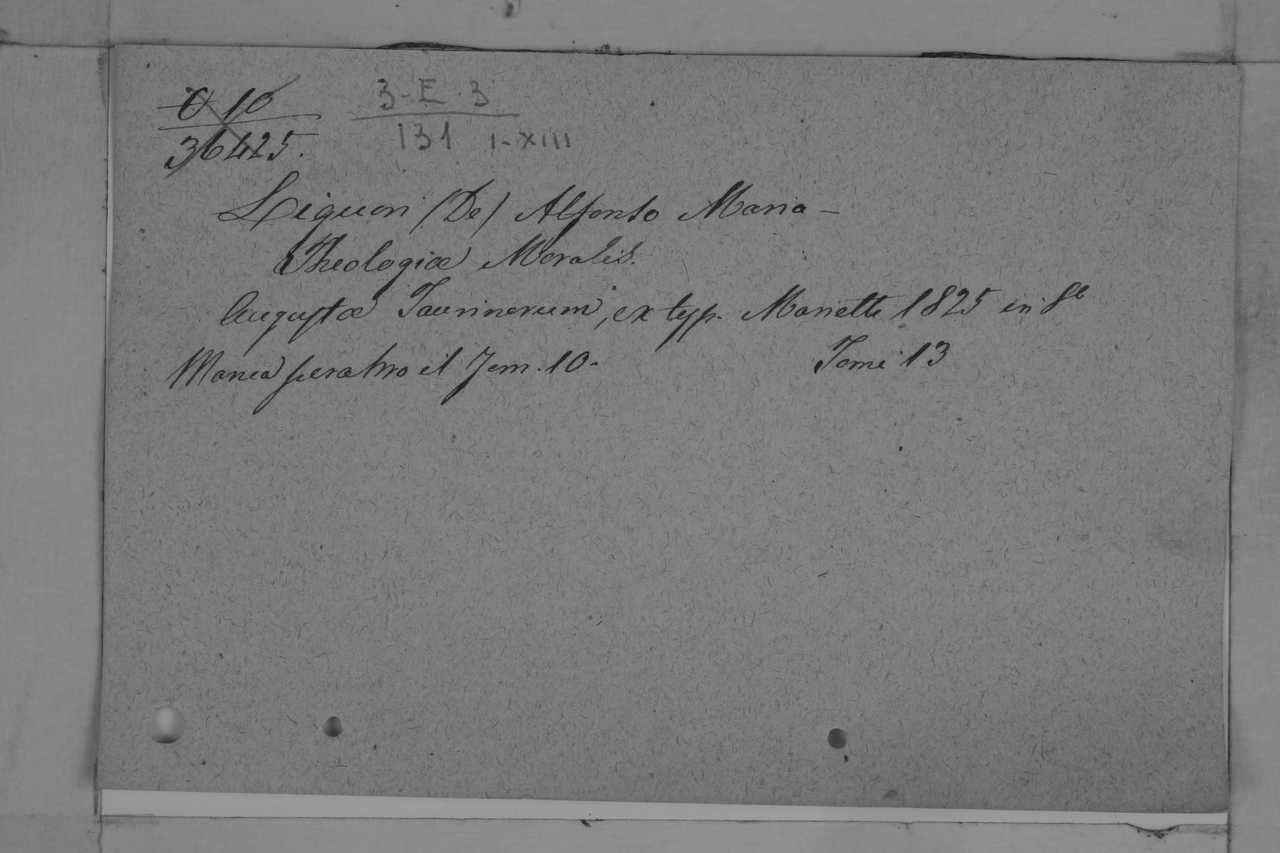 O 10 3-E.3
36425. 131 I-XIII
Liguori (De) Alfonso Maria -
Theologiæ Moralis.
Augustæ Taurinorum, ex typ. Marietti 1825 in 8º
Manca peraltro il Tom. 10. Tomi 13